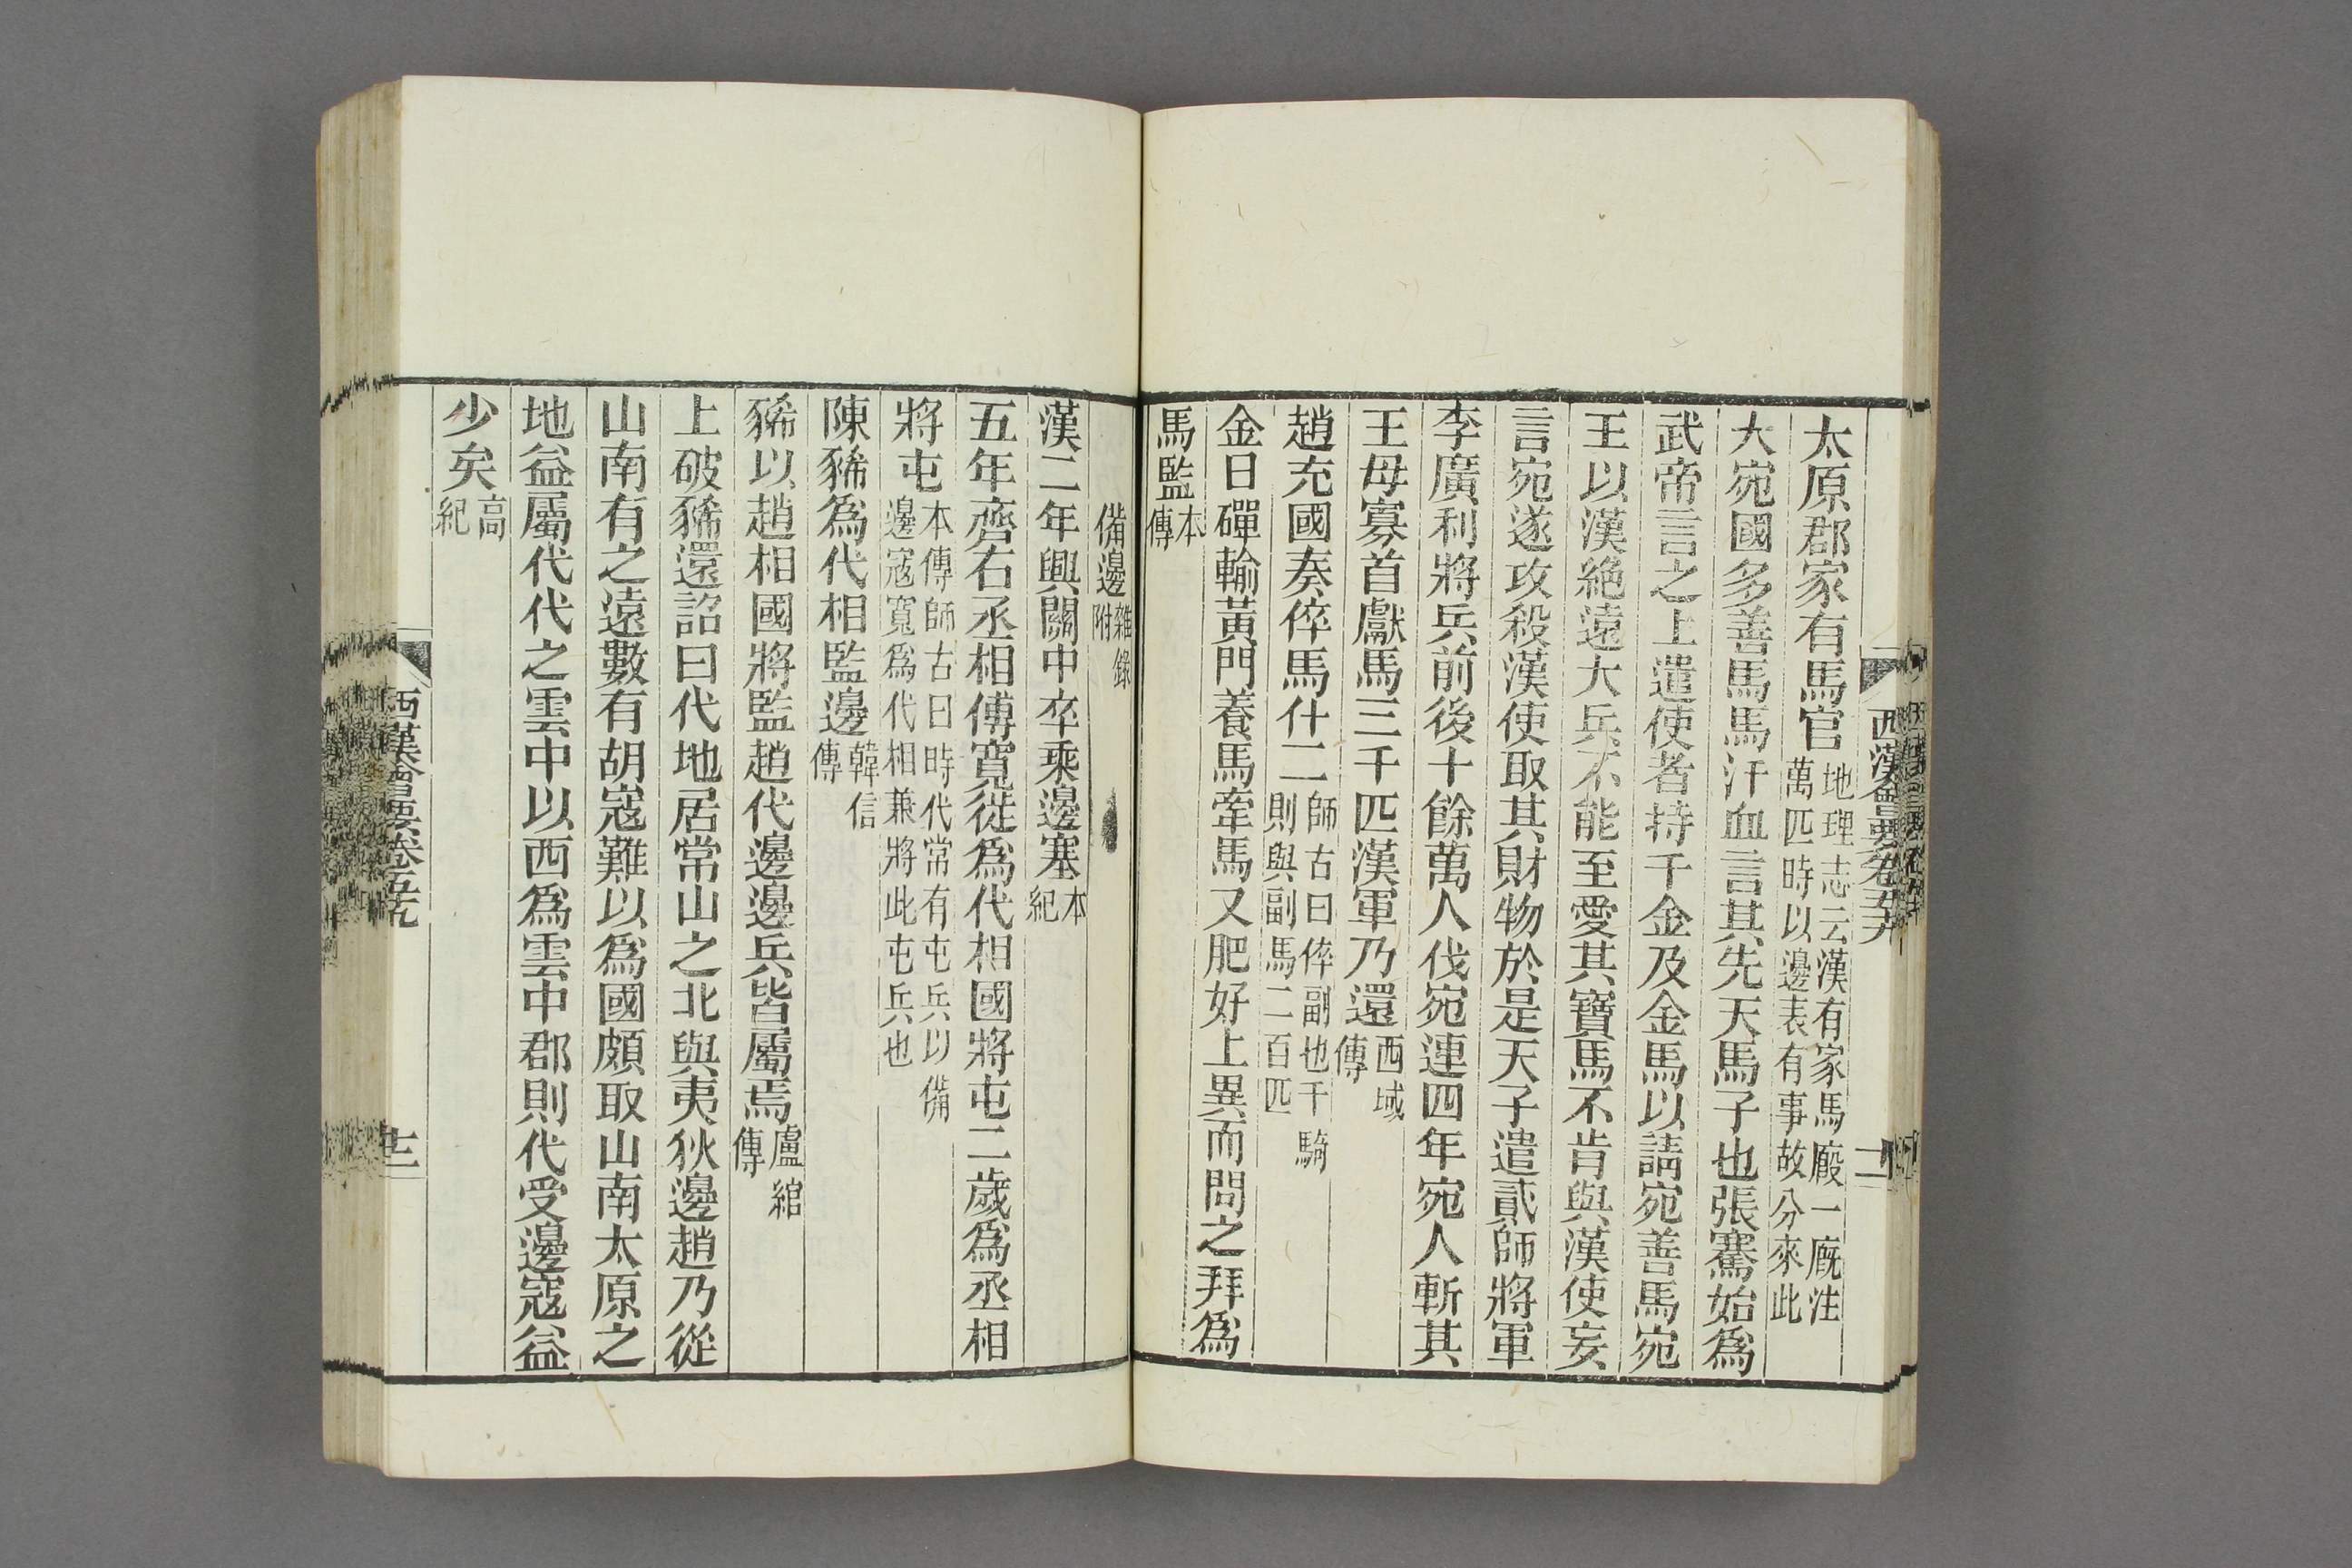 太原郡家有馬官地理志云漢有家馬廄一廐注
萬匹時以邊表有事故分來此
大宛國多善馬馬汗血言其先天馬子也張騫始爲
武帝言之上遣使者持千金及金馬以請宛善馬宛
王以漢絶遠大兵不能至愛其寶馬不肯與漢使妄
言宛遂攻殺漢使取其財物於是天子遣貳師將軍
李廣利將兵前後十餘萬人伐宛連四年宛人斬其
王母寡首獻馬三千匹漢軍乃還西域
傳
趙充國奏倅馬什二師古曰倅副也千騎
則與副馬二百匹
金日磾輸黃門養馬牽馬又肥好上異而問之拜爲
馬監本
傳
備邊雜錄
附
漢二年興關中卒乘邊塞本
紀
五年齊右丞相傅寬徙爲代相國將屯二歲爲丞相
將屯本傳師古曰時代常有屯兵以備
邊寇寬爲代相兼將此屯兵也
陳豨爲代相監邊韓信
傳
豨以趙相國將監趙代邊邊兵皆屬焉盧綰
傳
上破豨還詔曰代地居常山之北與夷狄邊趙乃從
山南有之遠數有胡寇難以爲國頗取山南太原之
地益屬代代之雲中以西爲雲中郡則代受邊寇益
少矣高
紀
西漢會要卷五十九
十三